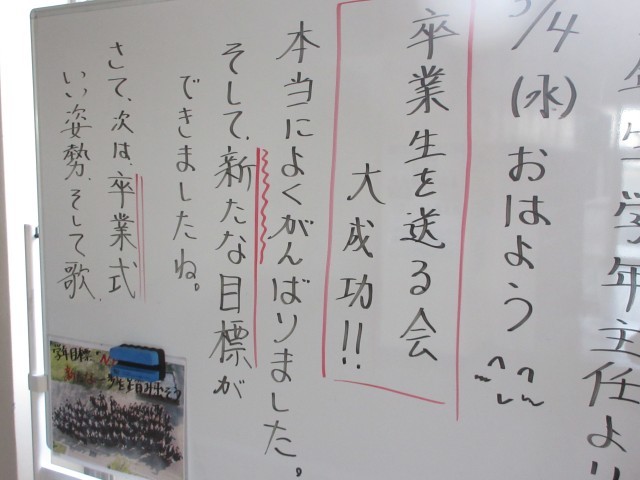 年生学年主任より
3/4(水)おはよう
卒業生を送る会
大成功!!
本当によくがんばりました。
そして、新たな目標が
できましたね。
さて、次は、卒業式
いい姿勢、そして歌、
学年目標